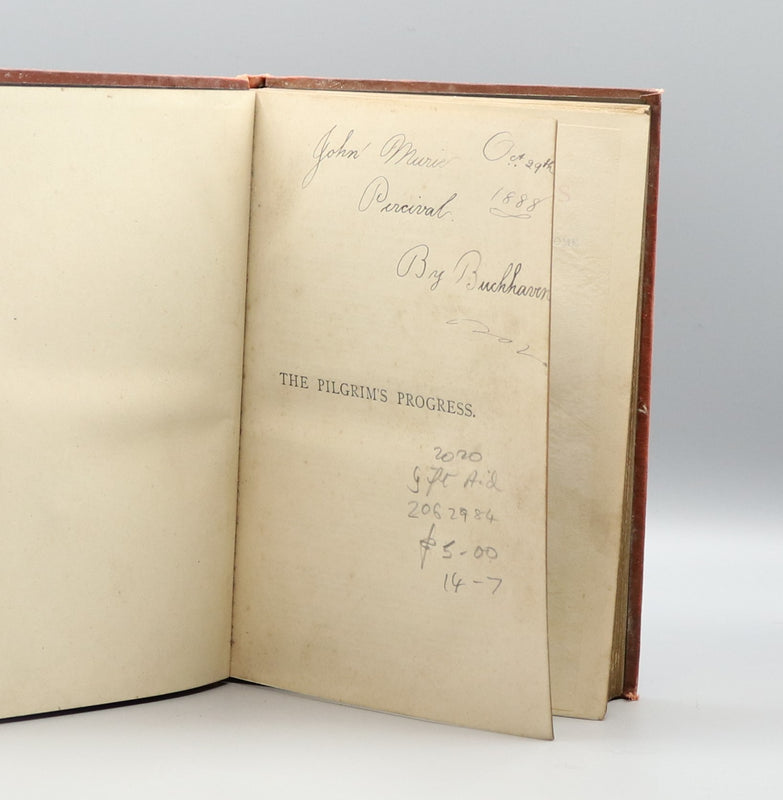 John Murie Oct 29th
Percival. 1888
By Buckhaven
THE PILGRIM'S PROGRESS.
2020
Gift Aid
2062984
5-00
14-7